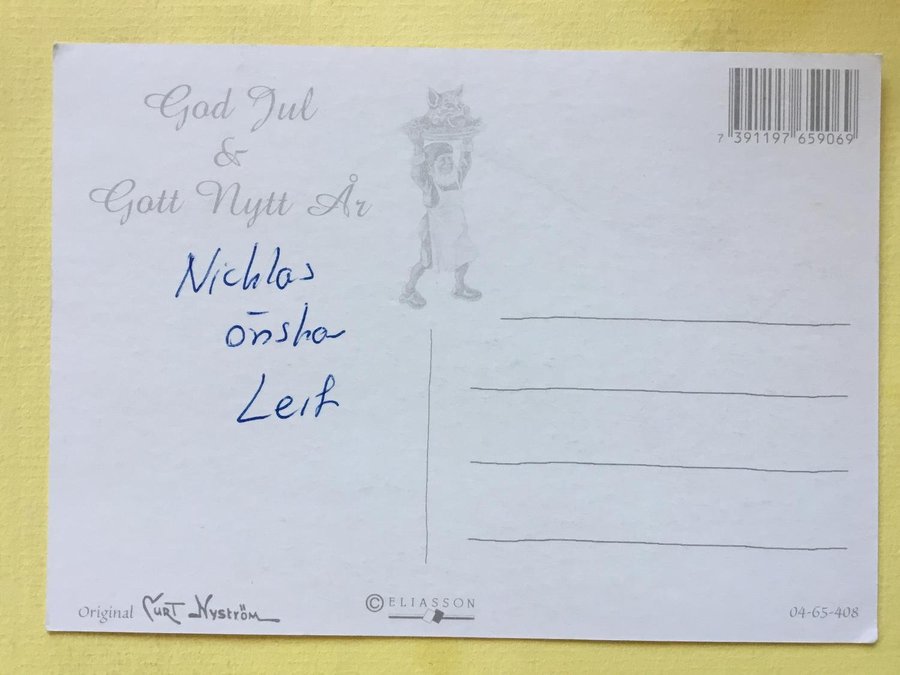 God Jul
&
Gott Nytt År
Nicklas
önskar
Leif
7 391197 659069
Original Curt Nyström
© ELIASSON
04-65-408